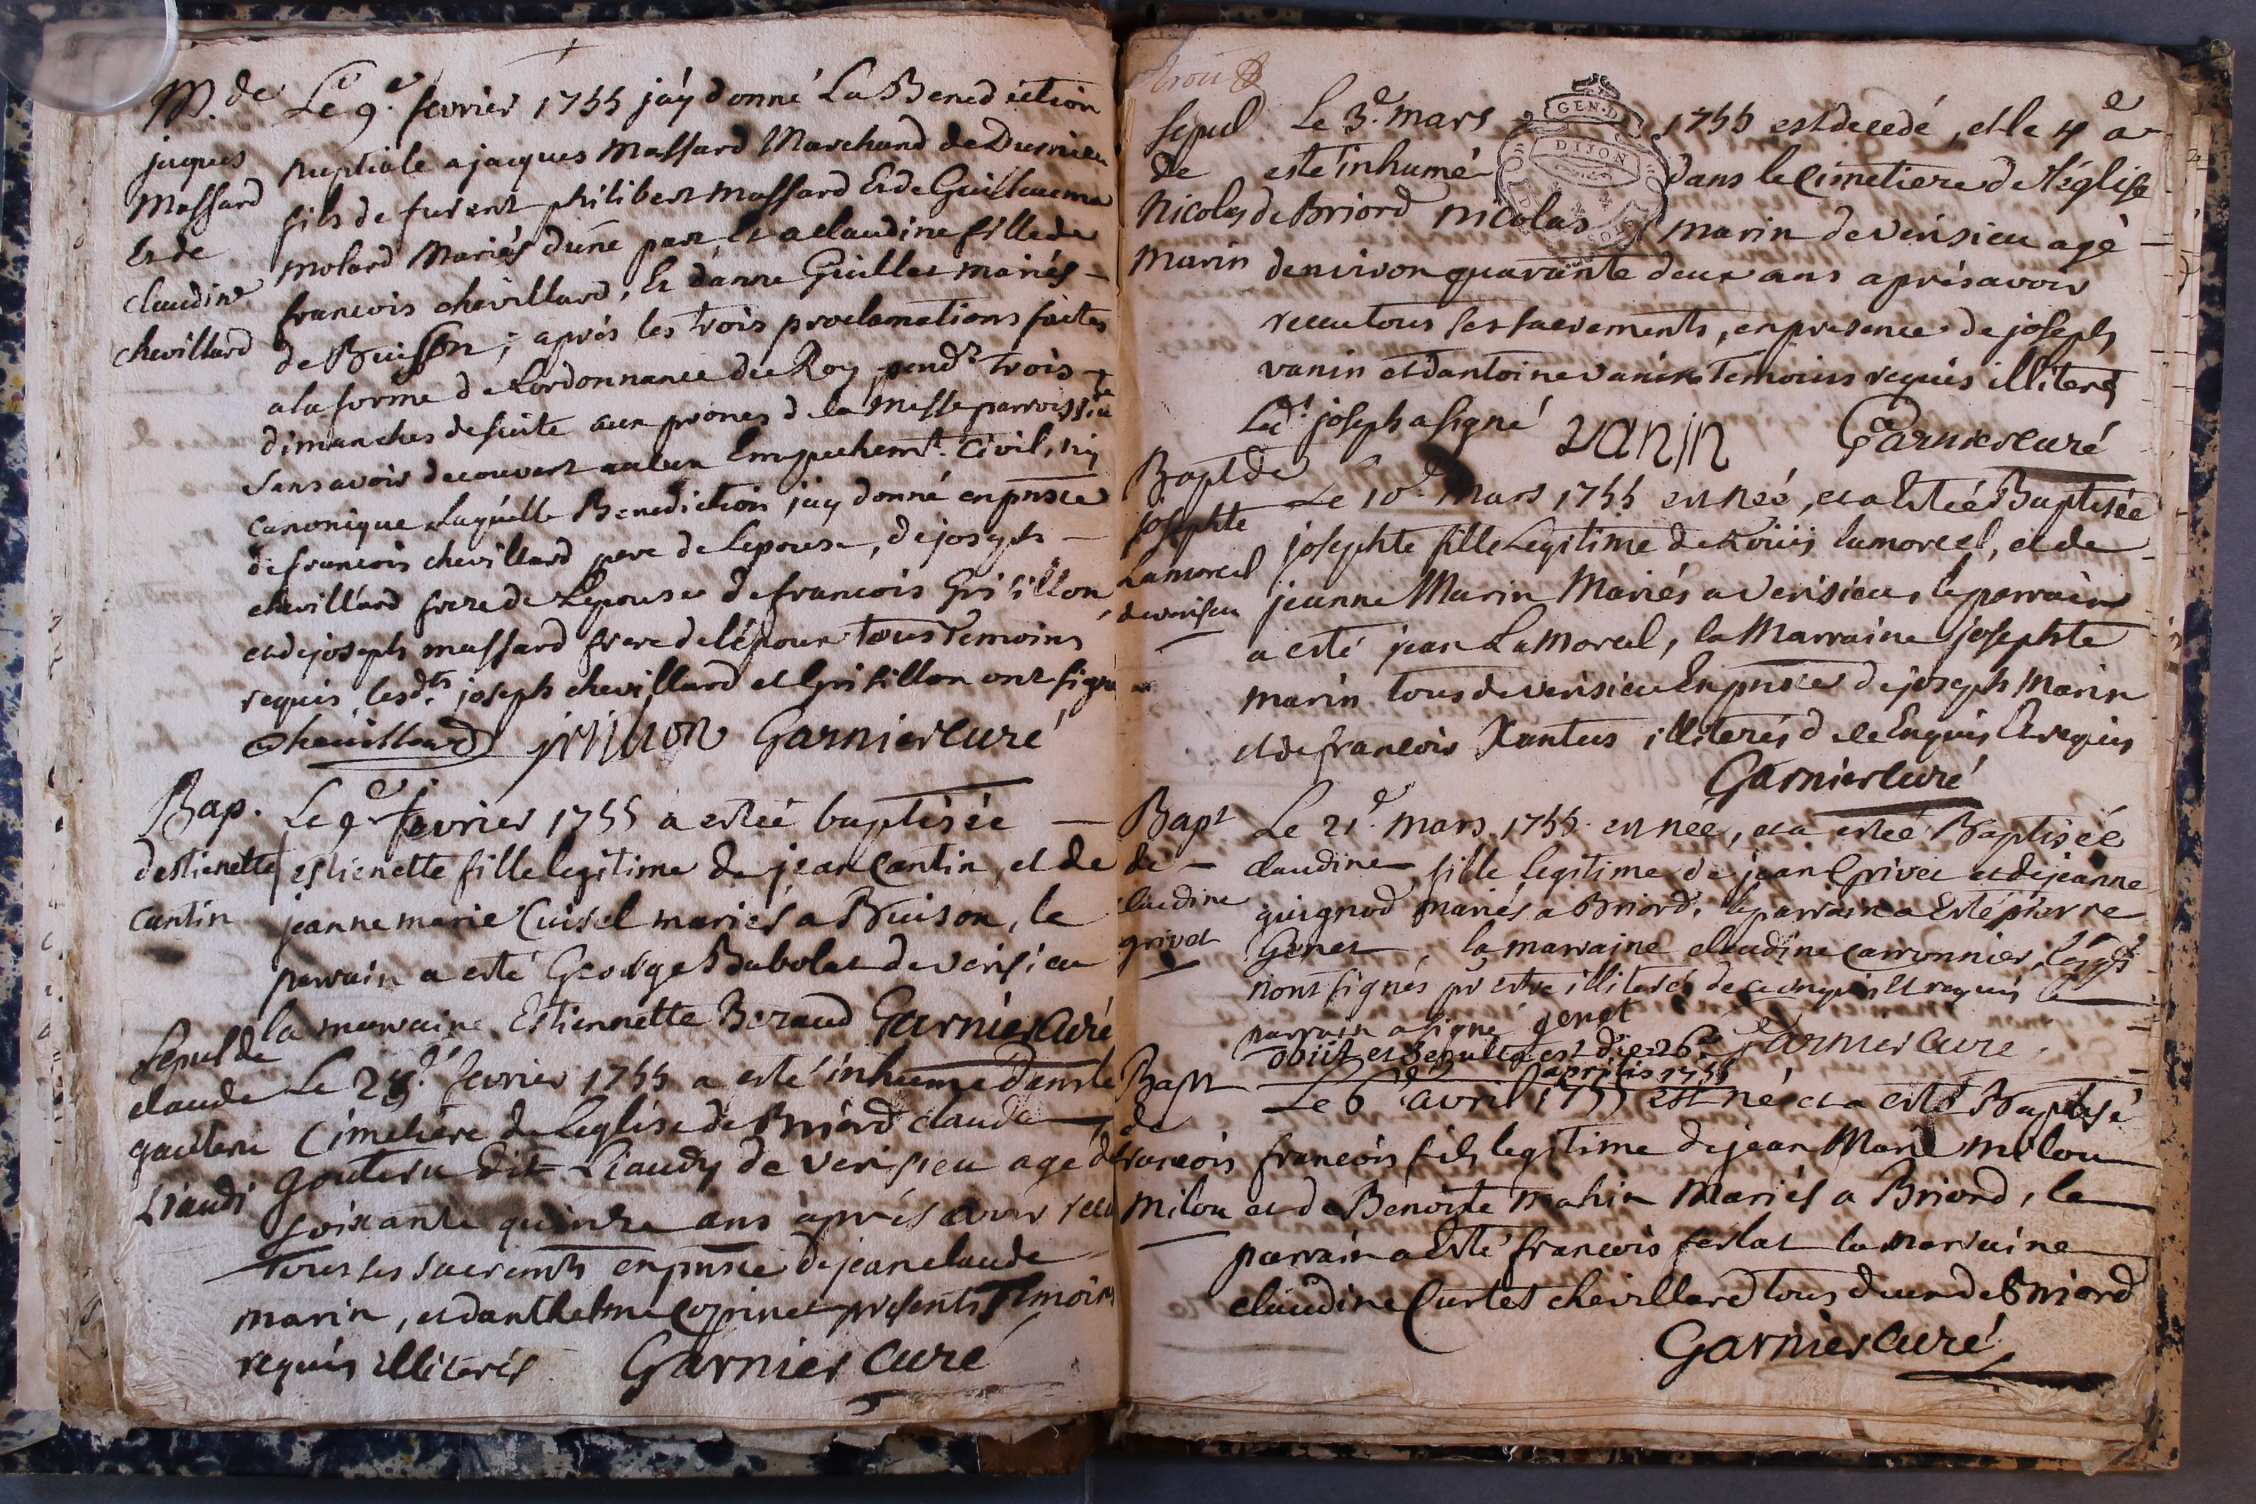 M. de
jaques
Massard
Et de
claudine
chevillard
Le 9e fevrier 1755 j'ay donné La Benediction
nuptiale a jacques Massard Marchand de
fils de furent philibert massard Et de Guillauma
molard Mariés d'une part, Et a claudine fille de
francois chevillard, Et d'anne Guillet mariés
de Buisson; aprés les trois proclamations faites
a la forme de Lordonnance du Roy pendt trois
dimanches de suite aux prones de la Messe parroissiale
sans avoir decouvert aucun Empechemt civil, ny
canonique Laquelle Benediction j'ay donné en pnsce
de francois chevillard pere de Lepouse, de joseph
chevillard frere de Lepouse de francois Grisillon
et de joseph massard frere de lépoux tous Temoins
requis, lesdts joseph chevillard et Grisillon ont signé
chevillard grisillon Garnier curé
Bap.
d'estienette
cantin
Le 9e fevrier 1755 a estée baptisée
estienette fille legitime de jean Cantin, et de
jeanne marie Cuisel mariés a Buison, le
parrain a esté George Babolat de verisieu
la marraine Estiennette Beraud Garnier Curé
Sepul de
claude
gouteru
Liaudi
Le 28e fevrier 1755 a esté inhumé dans le
Cimetiere de Leglise de Briord claude
gouteru dit Liaudy de Verisieu agé de
soixante quinze ans aprés avoir receu
tous ses sacremts en pnsce de jean claude
marin, et danthelme Coprinet présents Temoins
requis illiterés Garnier Curé
trois
sepul
de
Nicolas
Marin
Le 3e mars 1755 est decedé, et le 4e a
este inhumé dans le Cimetiere de l'église
de Briord nicolas marin de verisieu agé
denviron quarante deux ans aprés avoir
receu tous ses sacrements, en presence de joseph
vanin et dantoine vanin Temoins requis illiterés
Ledt joseph a signé vanin Garnier curé
Bapt de
josephte
Lamorcel
de verisieu
Le 10e Mars 1755 est née, et a Estée Baptisée
josephte fille Legitime de Loüis lamorcel, et de
jeanne Marin Mariés a verisieu, le parrain
a esté jean LaMorcel, la Marraine josephte
marin tous de verisieu En pnsce de joseph Marin
et de francois Xantus illiterés de ce Enquis Et requis
Garnier Curé
Bapt
de
claudine
grivet
Le 21e mars 1755 est née, et a estée Baptisée
claudine fille legitime de jean Grivet et de jeanne
guignod mariés a Briord, le parrain a Esté pierre
Genet, la marraine claudine Carronnier,
n'ont signés pr estre illiterés de ce enquis Et requis le
parrain a signé genet
obiit et sepulta est die 26e aprilis 1755 Garnier Curé
Bapt
de
francois
milou
Le 6e avril 1755 est né et a esté Baptisé
francois fils legitime de jean Marie milou
et de Benoite mahin Mariés a Briord, le
parrain a Esté francois ferlat la marraine
claudine Curtet chevillard tous deux de Briord
Garnier Curé
GEN. D
DIJON